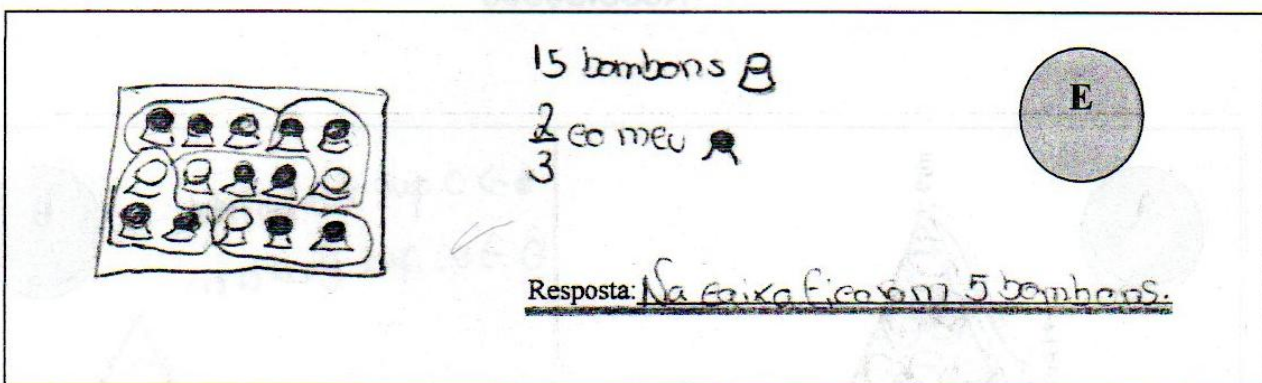 15 bombons
2
3
comeu
E
Resposta: Na caixa ficaram 5 bombons.